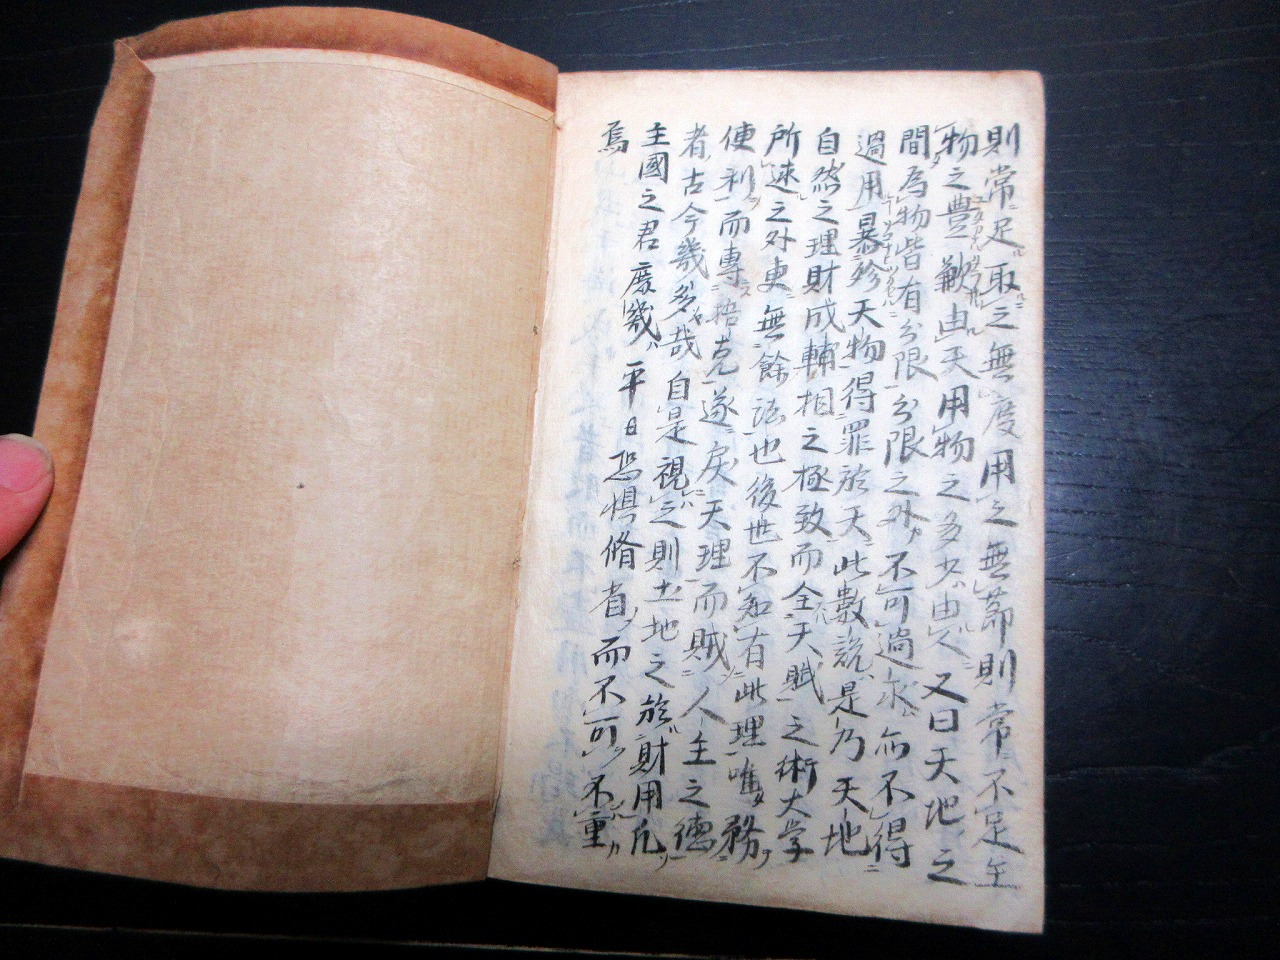 則常足取之無度用之無節則常不足生
物之豊歉由天用物之多少由人又曰天地之
間為物皆有分限分限之外不可過求而不得
過用暴殄天物得罪於天此數説是乃天地
自然之理財成輔相之極致而全天賦之術大学
所述之外更無餘法也後世不知有此理唯務
便利而專掊克遂戻天理而賊人主之德
者古今幾多哉自是視之則土地之於財用凡
主國之君庶幾平日恐惧脩省而不可不重
焉